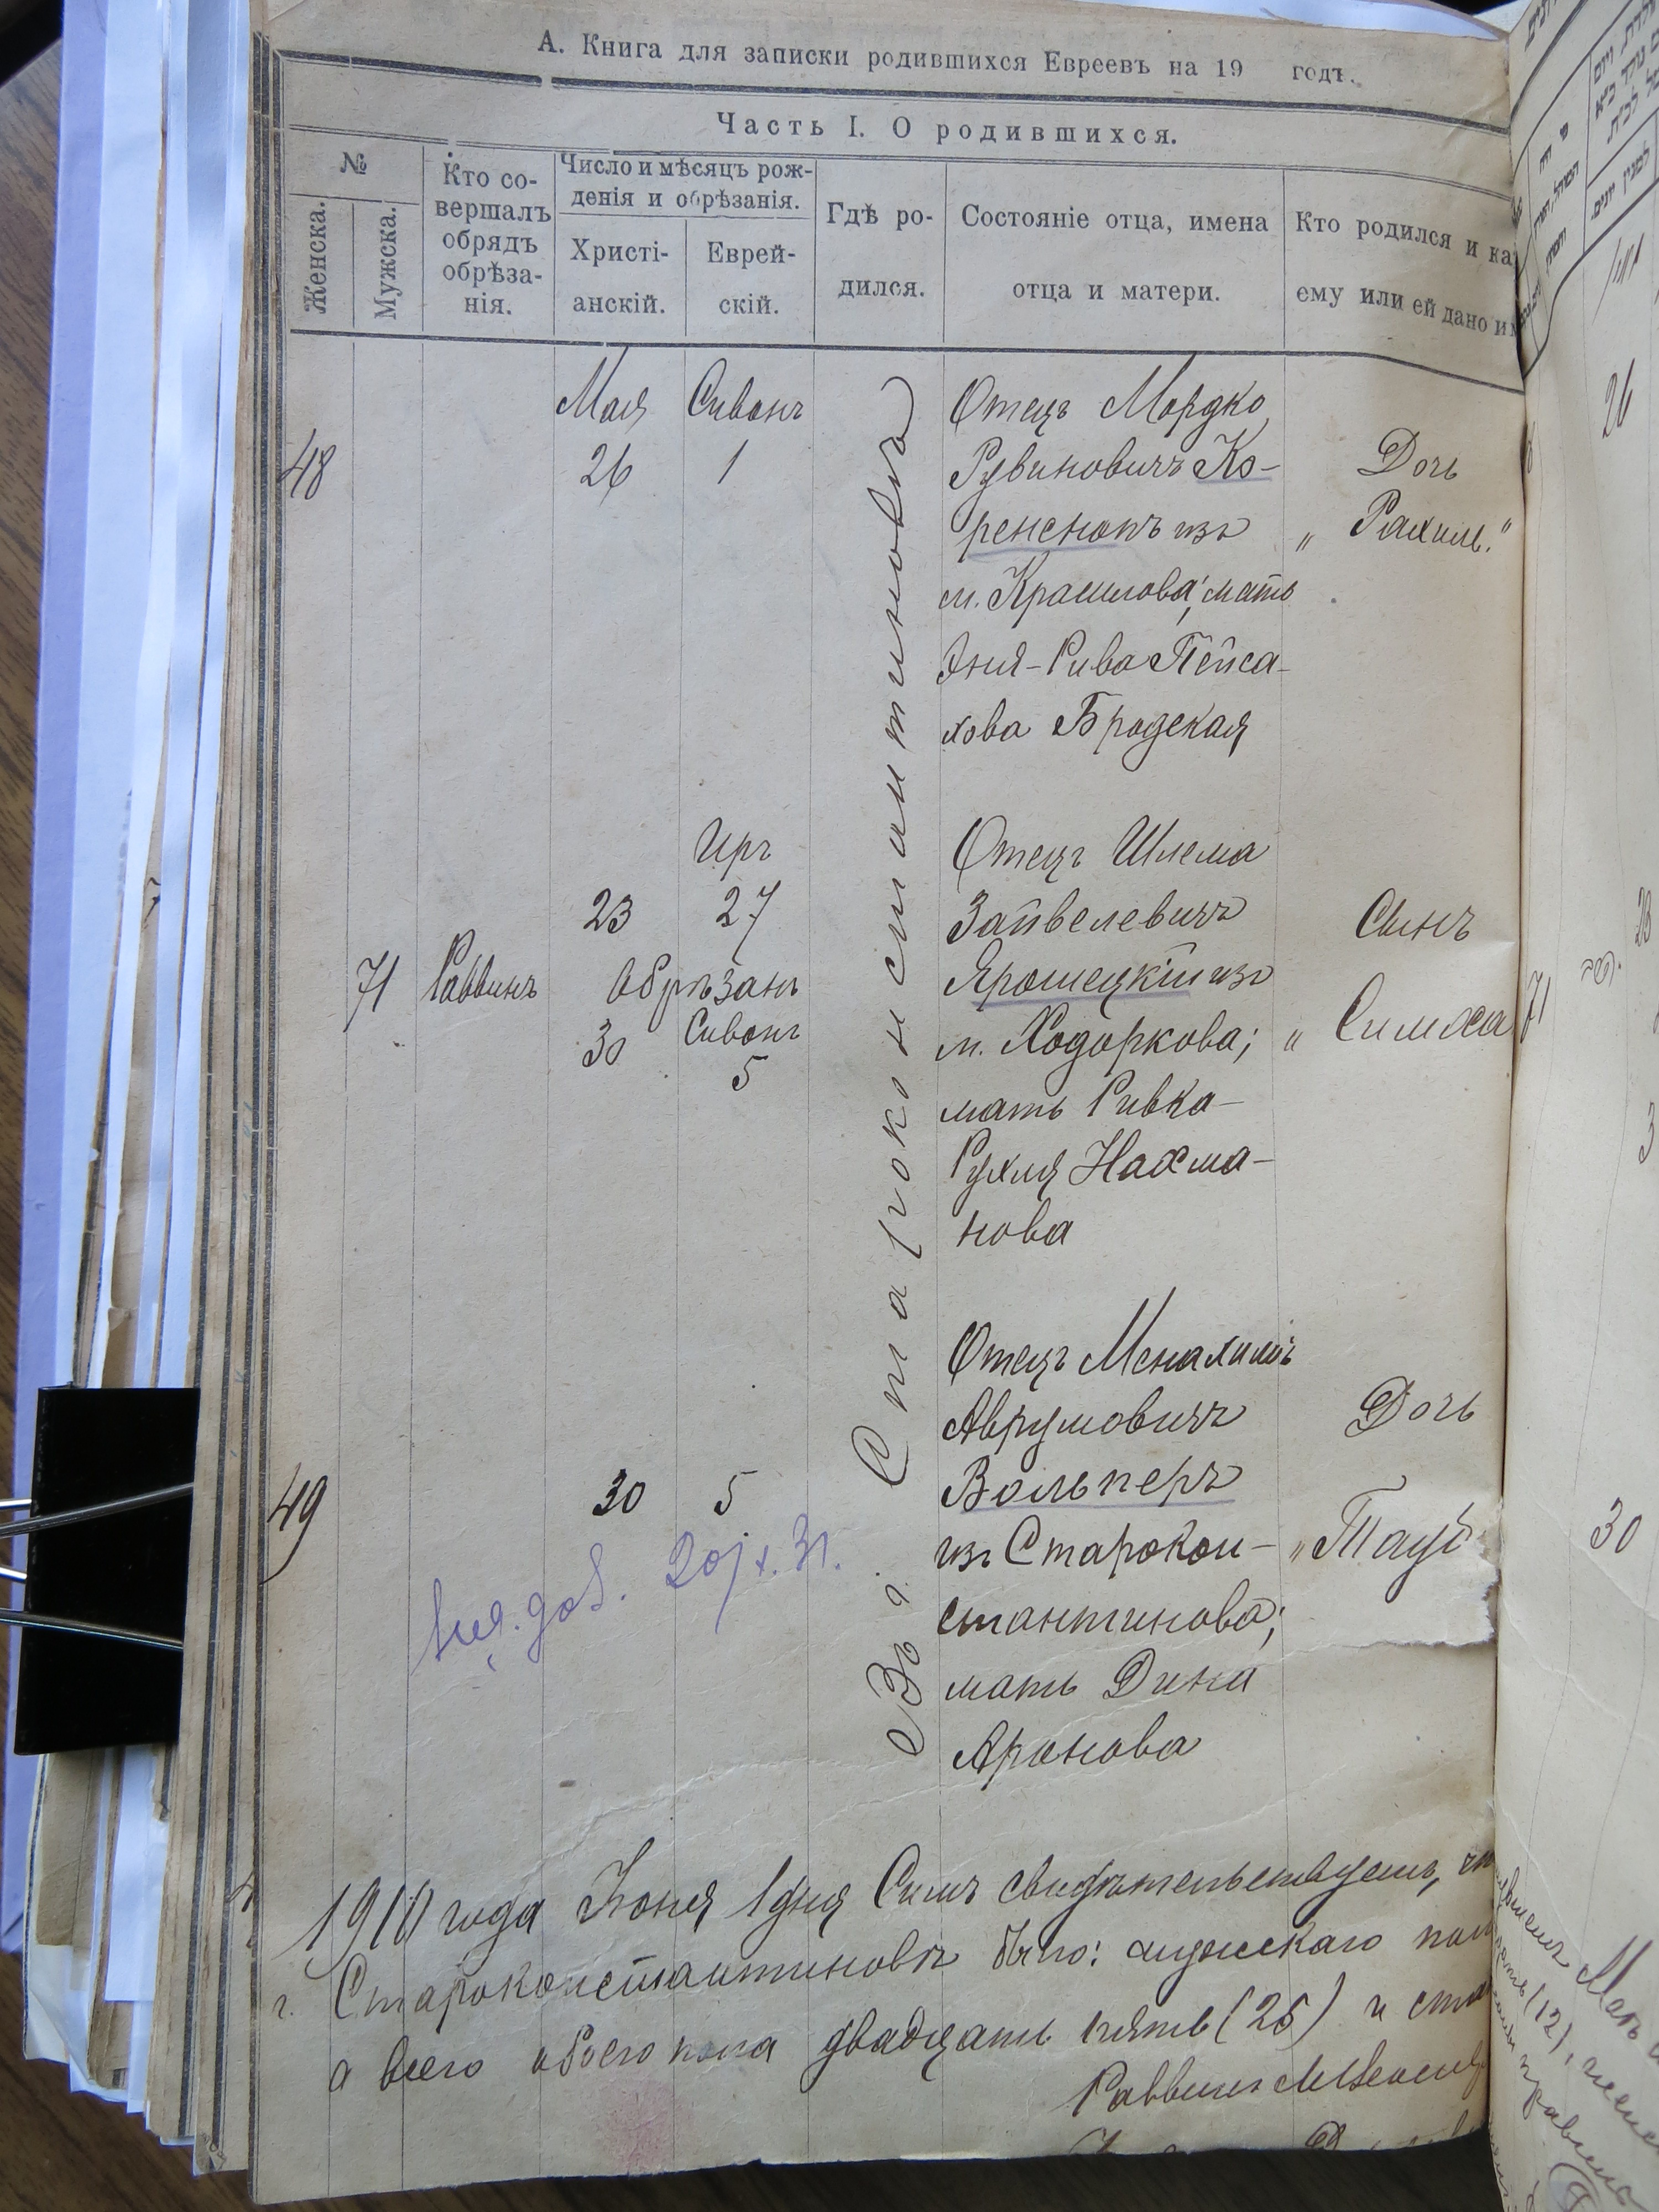 А. Книга для записки родившихся Евреевъ на 19 годъ.
Часть I. О родившихся.
№
Женска.
Мужска.
Кто со-
вершалъ
обрядъ
обрѣза-
нія.
Число и мѣсяцъ рож-
денія и обрѣзанія.
Христі-
анскій.
Еврей-
скій.
Гдѣ ро-
дился.
Состояніе отца, имена
отца и матери.
Кто родился и ка
ему или ей дано им
Въ г. Староконстантиновѣ
48
Мая
26
Сивонъ
1
Отецъ Мордко
Рувиновичъ Ко-
ренснопъ изъ
м. Красилова; мать
Эня-Рива Пейса-
хова Бродская
Дочь
„Рахиль."
71
Раввинъ
Иръ
23 27
Обрѣзанъ
30 Сивонъ
5
Отецъ Шлема
Зайвелевичъ
Ярошецкій изъ
м. Ходоркова;
мать Ривка-
Рухля Нахма-
нова
Сынъ
„Симха
49
30 5
Отецъ Менахимъ
Аврумовичъ
Вольперъ
изъ Старокон-
стантинова;
мать Дина
Аронова
Дочь
„Тауб
20/x. 31.
1910 года Іюня 1 дня Симъ свидѣтельствуемъ, чт
г. Старокон­стантиновѣ было: мужескаго пол
а всего обоего пола двадцать пять (25) и
Раввинъ
26
71
23
3
30